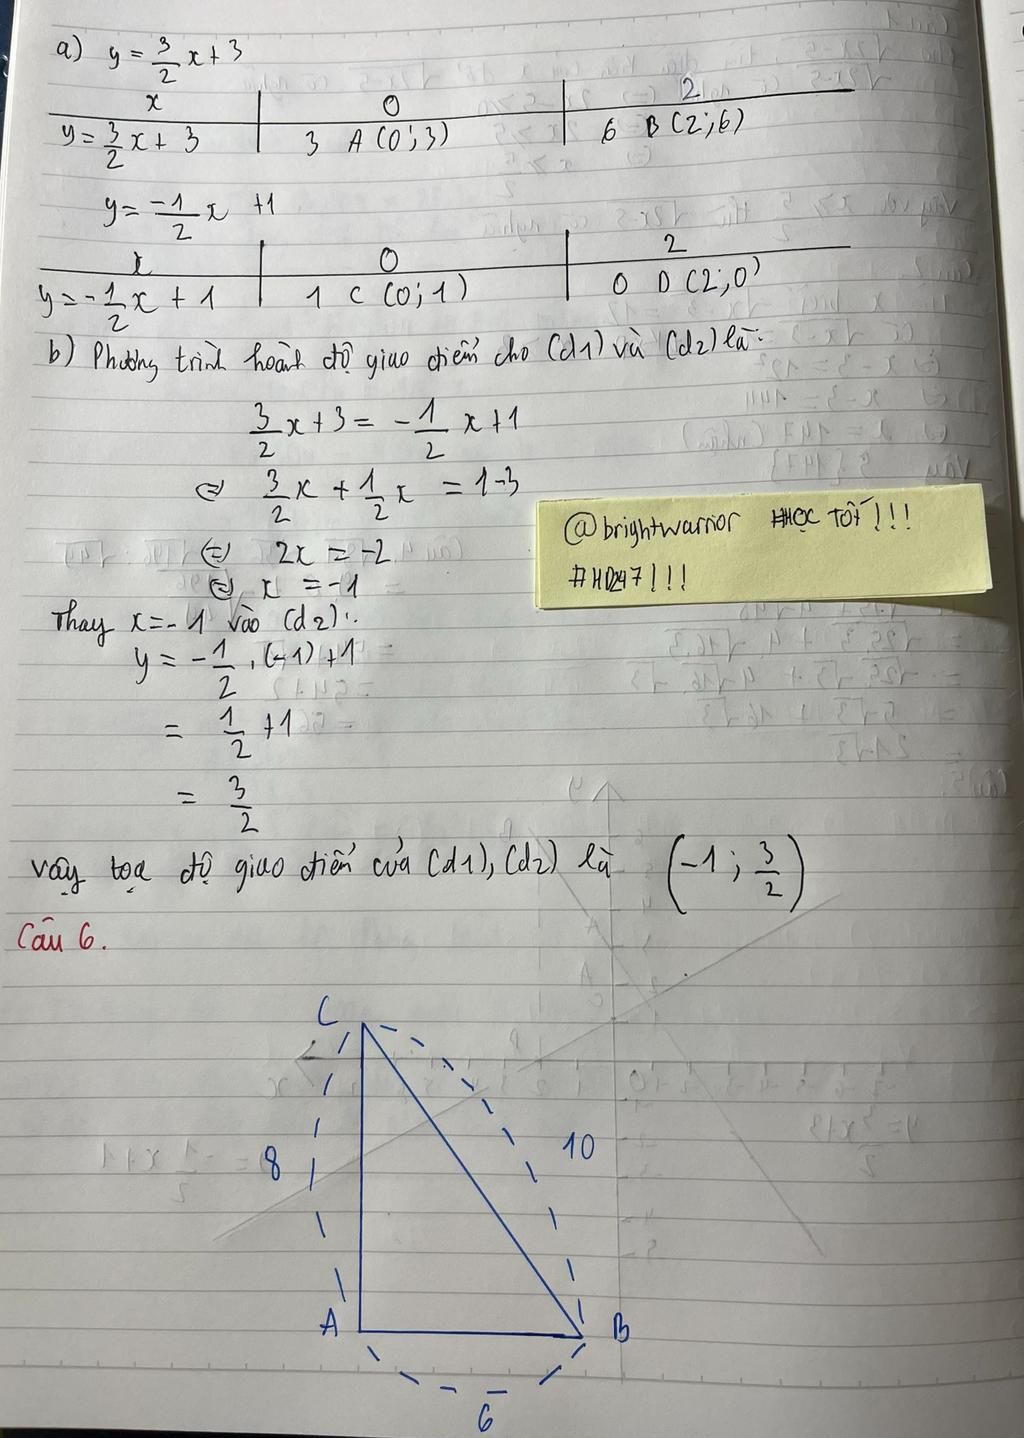 a) y = 3/2 x + 3
x | 0 | 2
y = 3/2 x + 3 | 3 A (0;3) | 6 B (2;6)
y = -1/2 x + 1
x | 0 | 2
y = -1/2 x + 1 | 1 C (0;1) | 0 D (2;0)
b) Phương trình hoành độ giao điểm cho (d1) và (d2) là:
3/2 x + 3 = -1/2 x + 1
⇔ 3/2 x + 1/2 x = 1-3
⇔ 2x = -2
⇔ x = -1
@brightwarrior #HỌC TỐT!!!
#HD247!!!
Thay x = -1 vào (d2):
y = -1/2 . (-1) + 1
= 1/2 + 1
= 3/2
vậy toạ độ giao điểm của (d1), (d2) là (-1; 3/2)
Câu 6.
C
8
10
A
B
6